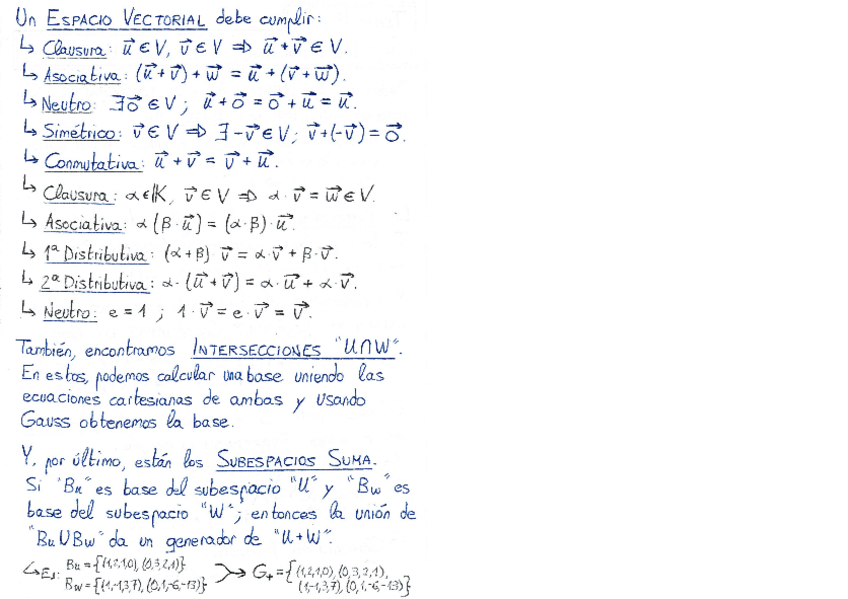 Un ESPACIO VECTORIAL debe cumplir:
↳ Clausura: u⃗ ∈ V, v⃗ ∈ V ⇒ u⃗ + v⃗ ∈ V.
↳ Asociativa: (u⃗ + v⃗) + w⃗ = u⃗ + (v⃗ + w⃗).
↳ Neutro: ∃ o⃗ ∈ V ; u⃗ + o⃗ = o⃗ + u⃗ = u⃗.
↳ Simétrico: v⃗ ∈ V ⇒ ∃ -v⃗ ∈ V ; v⃗ + (-v⃗) = o⃗.
↳ Conmutativa: u⃗ + v⃗ = v⃗ + u⃗.
↳ Clausura: α ∈ K, v⃗ ∈ V ⇒ α · v⃗ = w⃗ ∈ V.
↳ Asociativa: α (β · u⃗) = (α · β) · u⃗.
↳ 1ª Distributiva: (α + β) · v⃗ = α · v⃗ + β · v⃗.
↳ 2ª Distributiva: α · (u⃗ + v⃗) = α · u⃗ + α · v⃗.
↳ Neutro: e = 1 ; 1 · v⃗ = e · v⃗ = v⃗.
También, encontramos INTERSECCIONES "U∩W".
En estos, podemos calcular una base uniendo las
ecuaciones cartesianas de ambas y usando
Gauss obtenemos la base.
Y, por último, están los SUBESPACIOS SUMA.
Si "Bu" es base del subespacio "U" y "Bw" es
base del subespacio "W"; entonces la unión de
"Bu U Bw" da un generador de "U+W".
↳ Ej: Bu = {(1,2,1,0), (0,3,2,1)}
Bw = {(1,-1,3,7), (0,1,-6,-13)}
G₊ = {(1,2,1,0), (0,3,2,1),
(1,-1,3,7), (0,1,-6,-13)}